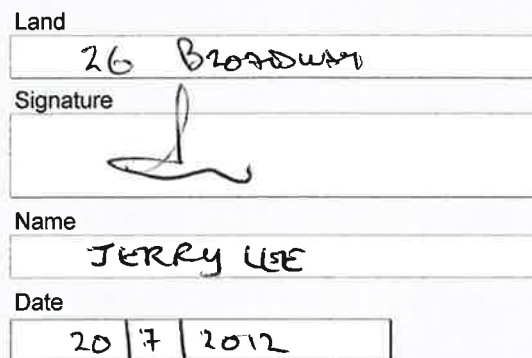 Land
26 BROADWAY
Signature
Name
JERRY LEE
Date
20 7 2012